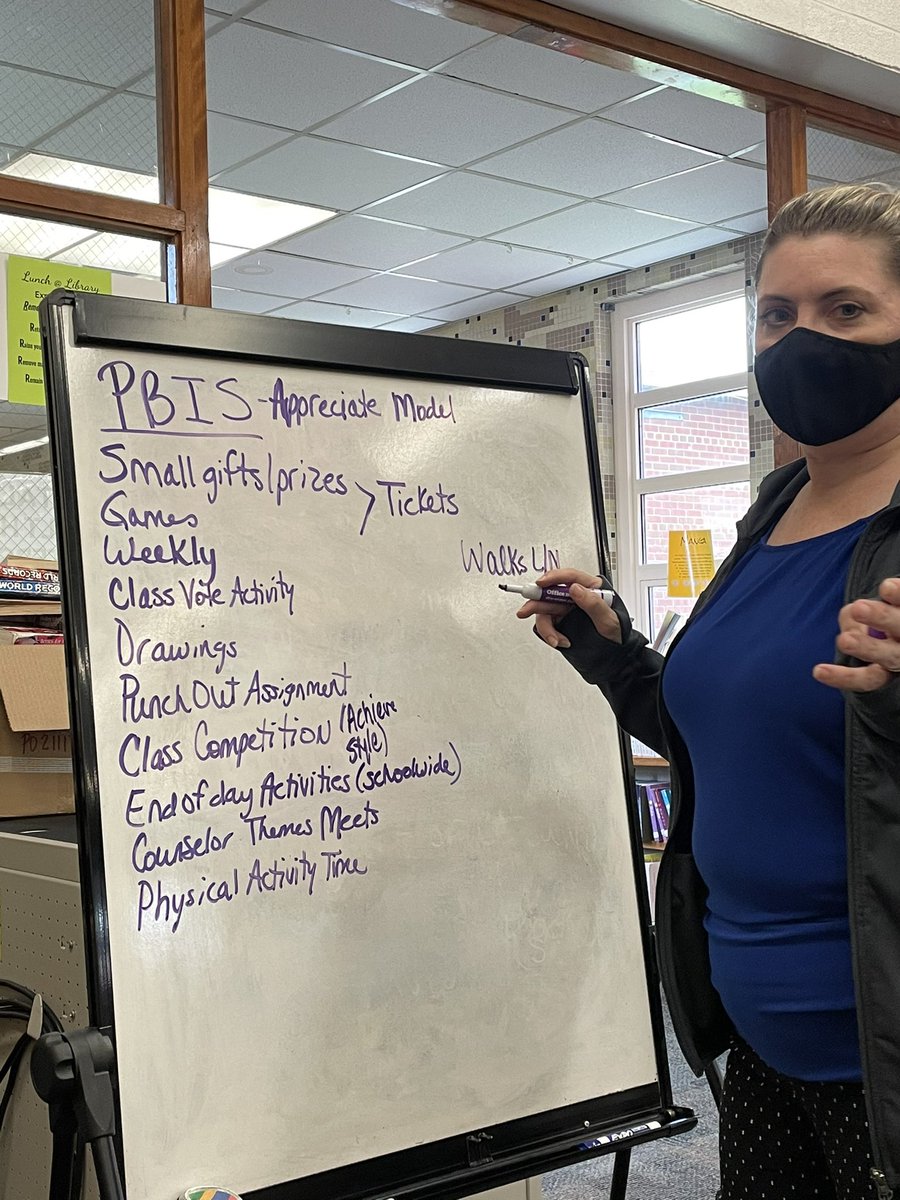 Lunch @ Library
PBIS - Appreciate Model
Small gifts/prizes > Tickets
Games
Weekly
Walks Y/N
Class Vote Activity
Drawings
Punch Out Assignment
Class Competition (Achieve
style)
End of day Activities (schoolwide)
Counselor Themes Meets
Physical Activity Time
MANGA
WORLD RECORDS
Office
EXPO